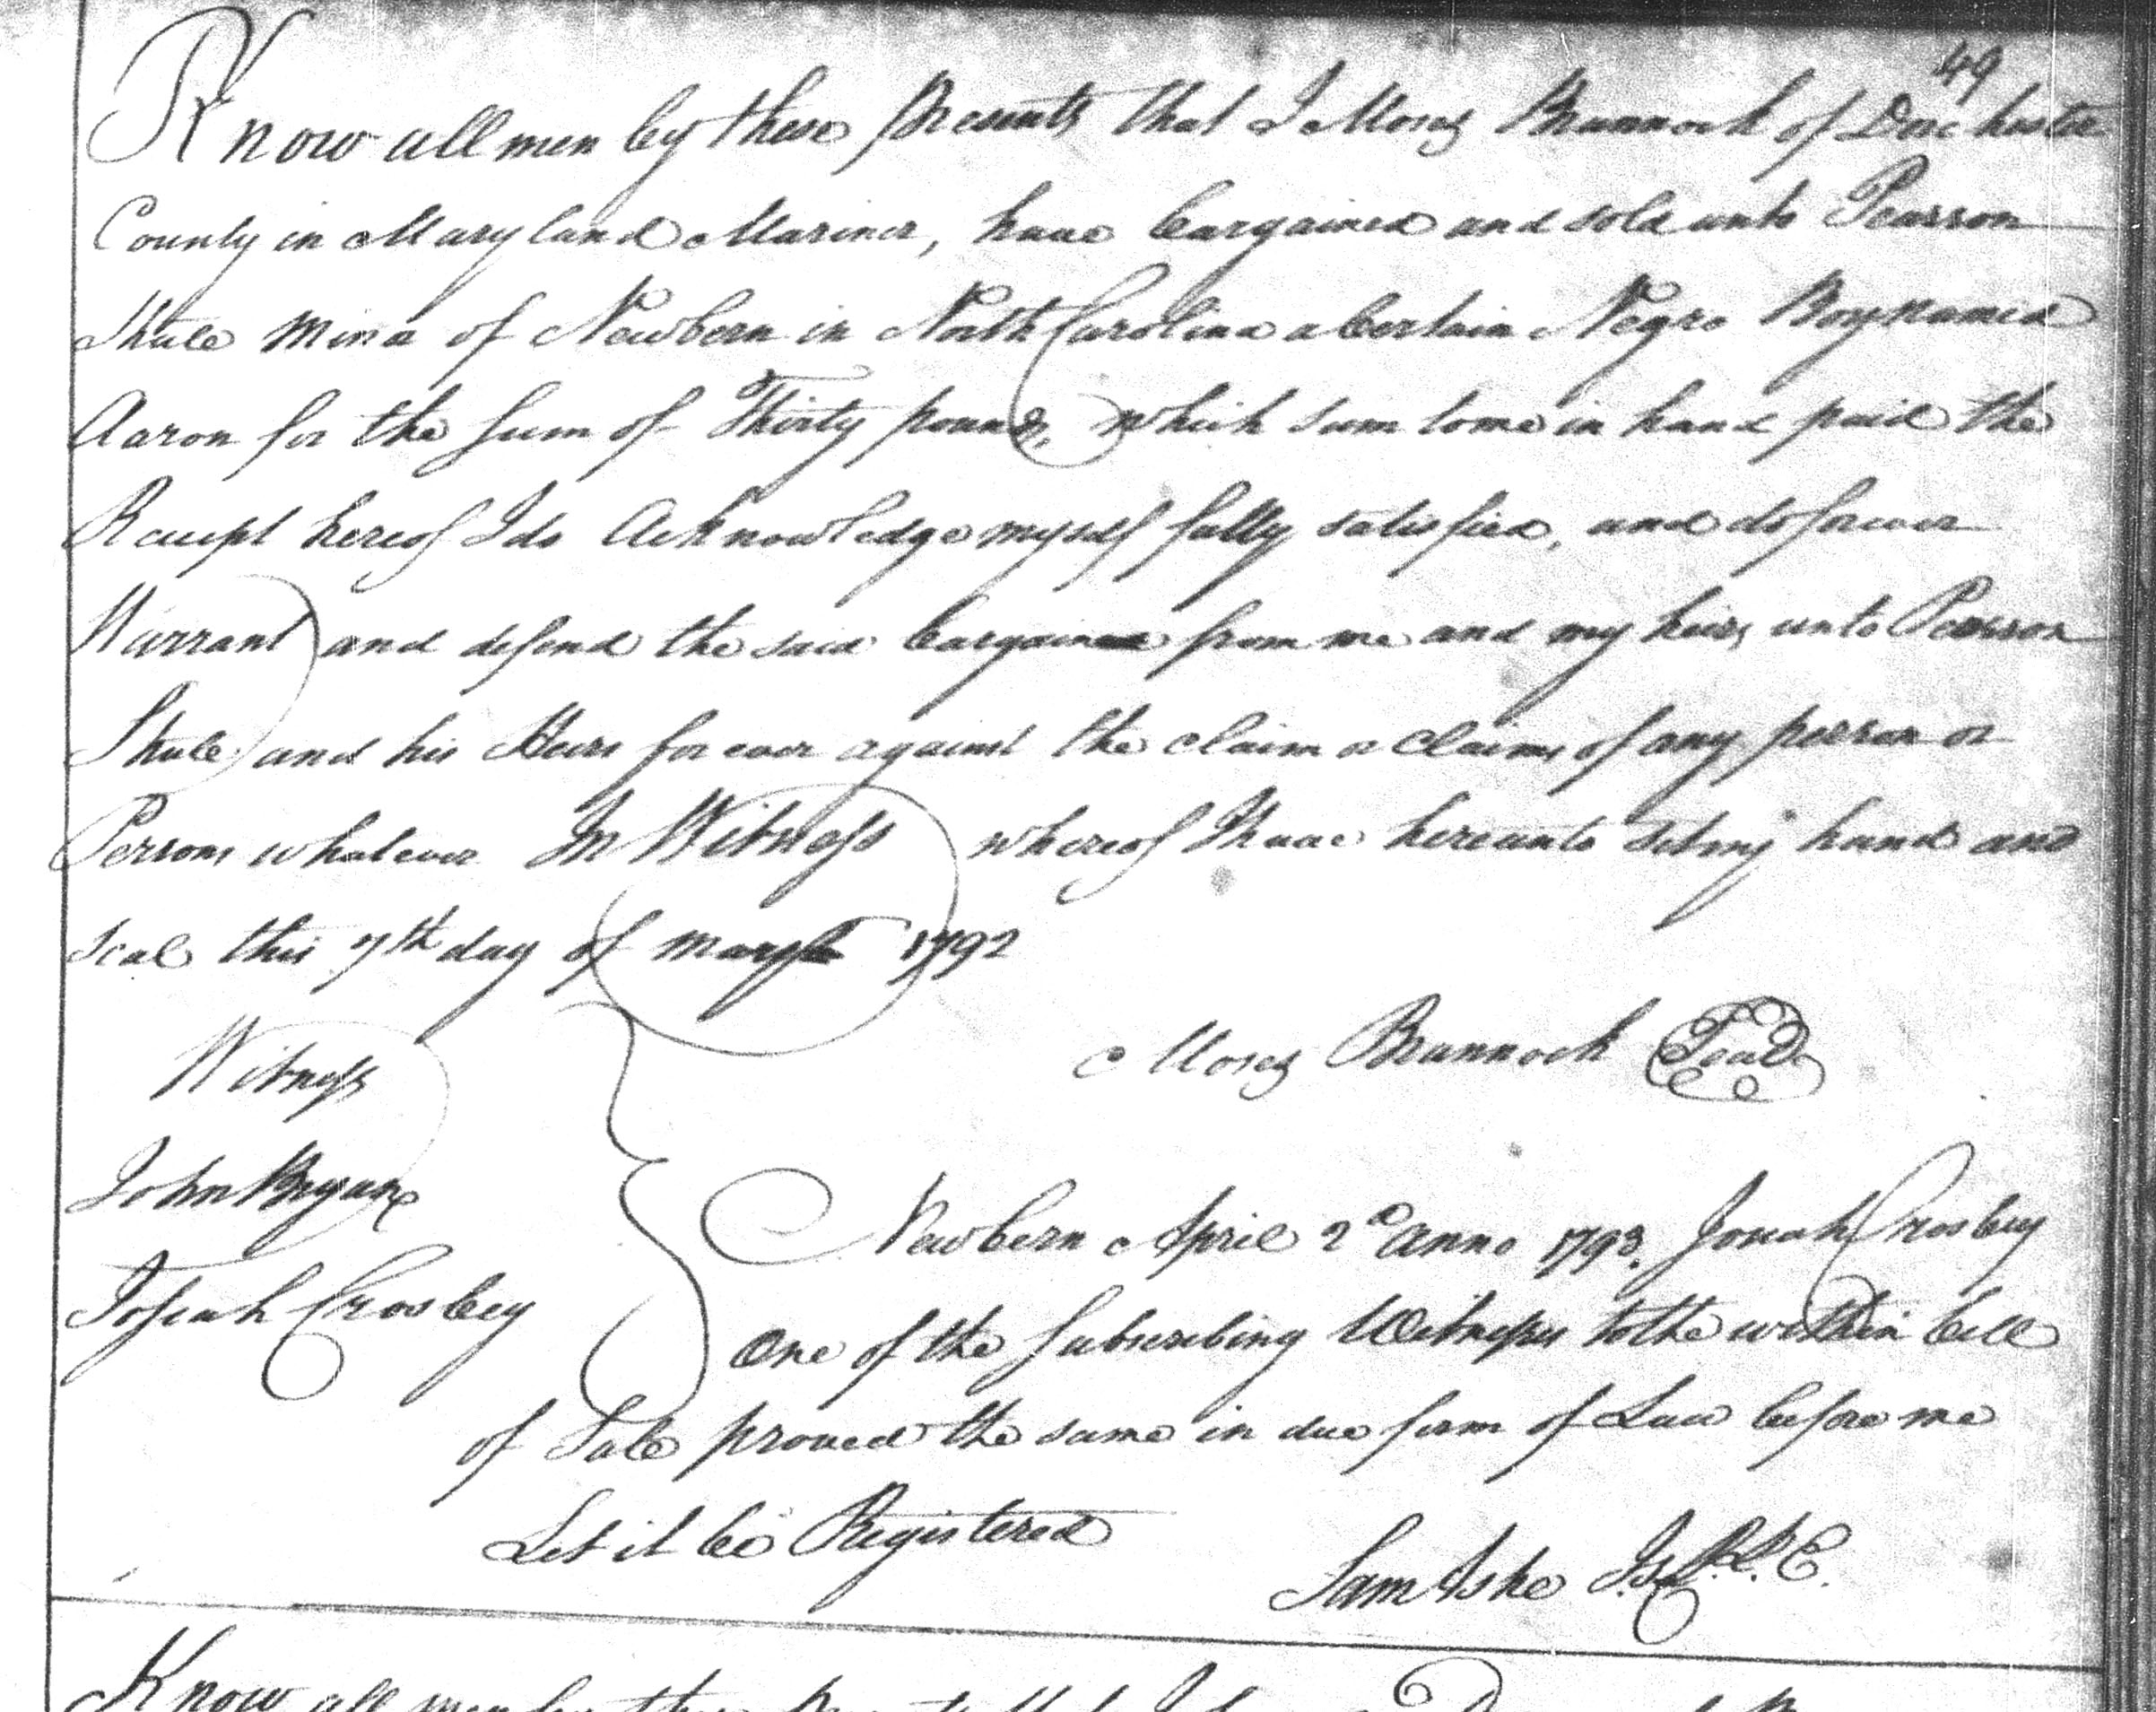 49
Know all men by these Presents that I Moses Brannock of Dorchester
County in Maryland Mariner, have bargained and sold unto Pearson
Shule of Newbern in North Carolina a Certain Negro Boy named
Aaron for the Sum of Thirty pounds, which sum to me in hand paid the
Receipt hereof I do Acknowledge myself fully satisfied, and do forever
Warrant and defend the said from me and my heirs unto Pearson
Shule and his Heirs for ever against the claim or claims of any person or
Persons whatever In Witness whereof I have hereunto set my hand and
seal this 7th day of 1792
Moses Brannock Seal
Witness
John Bryan
Josiah Crosbey
Newbern April 2d Anno 1793. Josiah Crosbey
One of the Subscribing Witnesses to the within bill
of Sale proved the same in due form of Law before me
Let it be Registered
Sam Ashe
Know all men by these